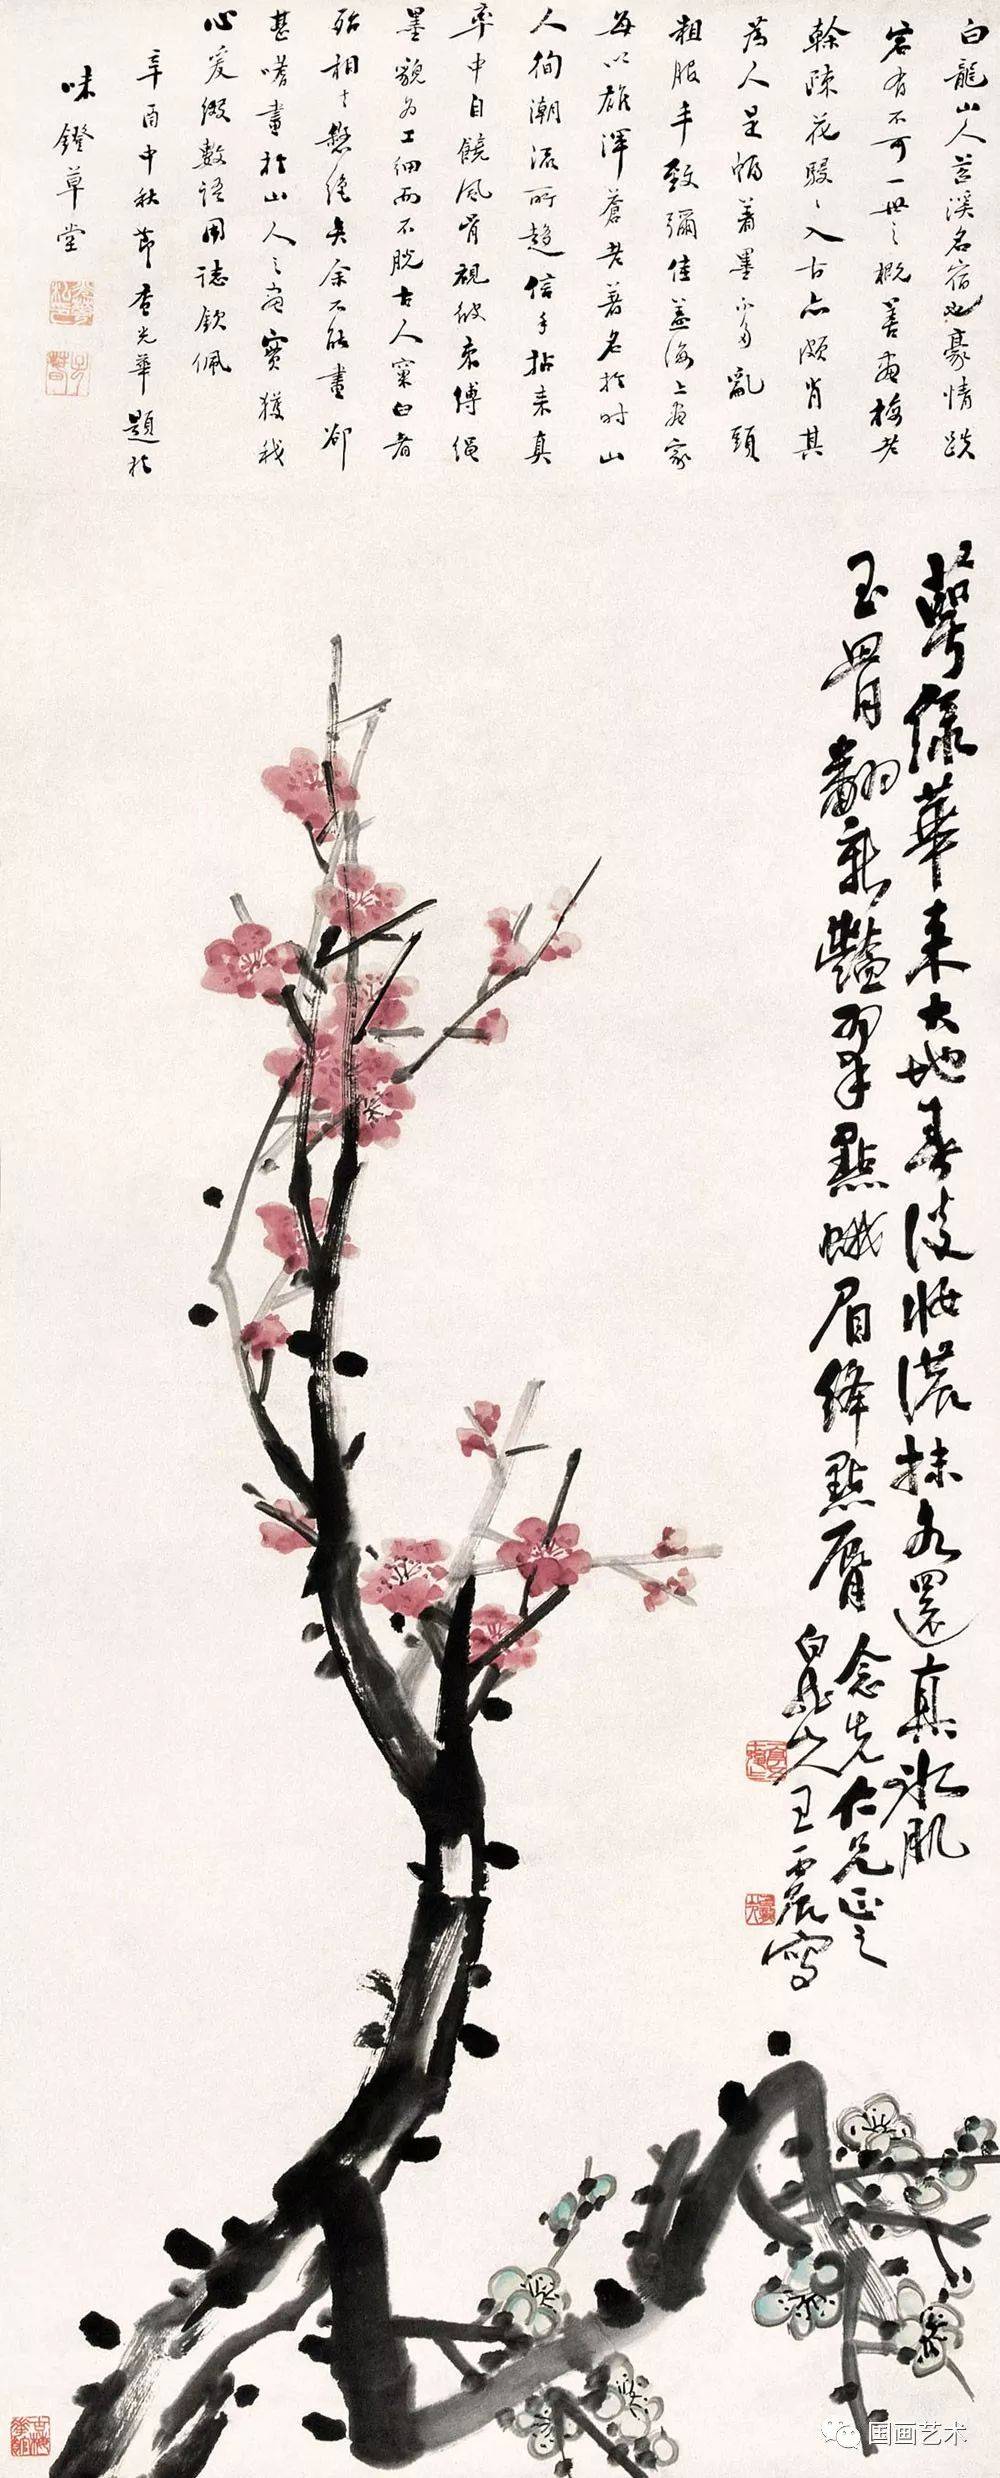 白龍山人苕溪名宿也豪情跌
宕有不可一世之概善畫梅老
榦陳花駸〻入古亦頗肖其
為人是幀著墨不多亂頭
粗服丰致彌佳蓋海上畫家
每以雄渾蒼老著名於時山
人徇潮流所趨信手拈来真
率中自饒風骨視彼束縛繩
墨貌為工細而不脫古人窠臼者
殆相去懸絕矣余不能畫卻
甚嗜畫於山人之畫實獲我
心爰綴數語用誌欽佩
辛酉中秋節 光華題於
味鐙草堂
萼綠華来大地春淡妝濃抹九還真冰肌
玉骨翻新豔翠點蛾眉絳點脣
念先仁兄正之
白龍山人王震寫
国画艺术